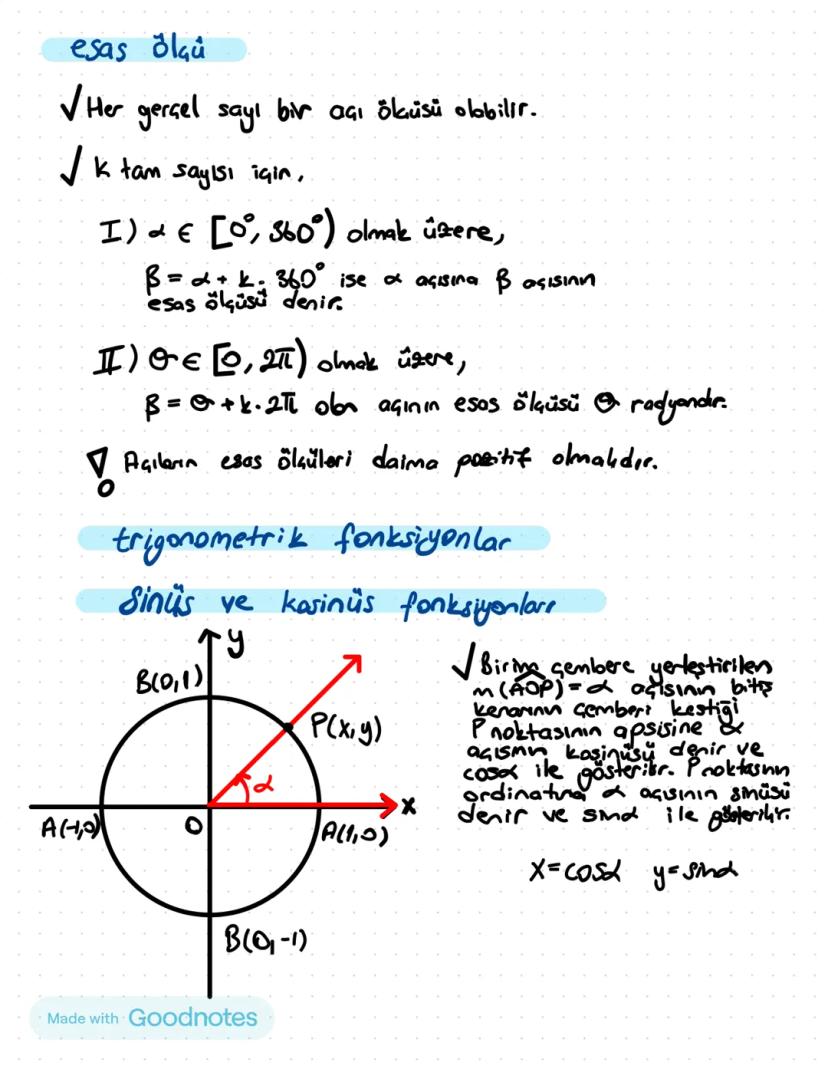 esas ölçü
√ Her gerçel sayı bir açı ölçüsü olabilir.
√ k tam sayısı için,
I) α ∈ [0°, 360°) olmak üzere,
β = α + k. 360° ise α açısına β açısının
esas ölçüsü denir.
II) θ ∈ [0, 2π) olmak üzere,
β = θ + k. 2π olan açının esas ölçüsü θ radyandır.
! Açıların esas ölçüleri daima pozitif olmalıdır.
trigonometrik fonksiyonlar
Sinüs ve kosinüs fonksiyonları
y
B(0,1)
P(x,y)
α
x
A(-1,0)
O
A(1,0)
B(0,-1)
√ Birim çembere yerleştirilen
m(AOP) = α açısının bitiş
kenarının çemberi kestiği
P noktasının apsisine α
açısının kosinüsü denir ve
cosα ile gösterilir. P noktasının
ordinatına α açısının sinüsü
denir ve sinα ile gösterilir.
x=cosα y=sinα
Made with Goodnotes